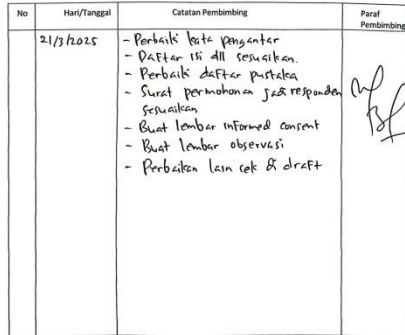 No Hari/Tanggal Catatan Pembimbing Paraf Pembimbing
21/3/2025 - Perbaiki kata pengantar
- Daftar isi dll sesuaikan.
- Perbaiki daftar pustaka
- Surat permohonan jadi responden
sesuaikan
- Buat lembar informed consent
- Buat lembar observasi
- Perbaikan lain cek di draft